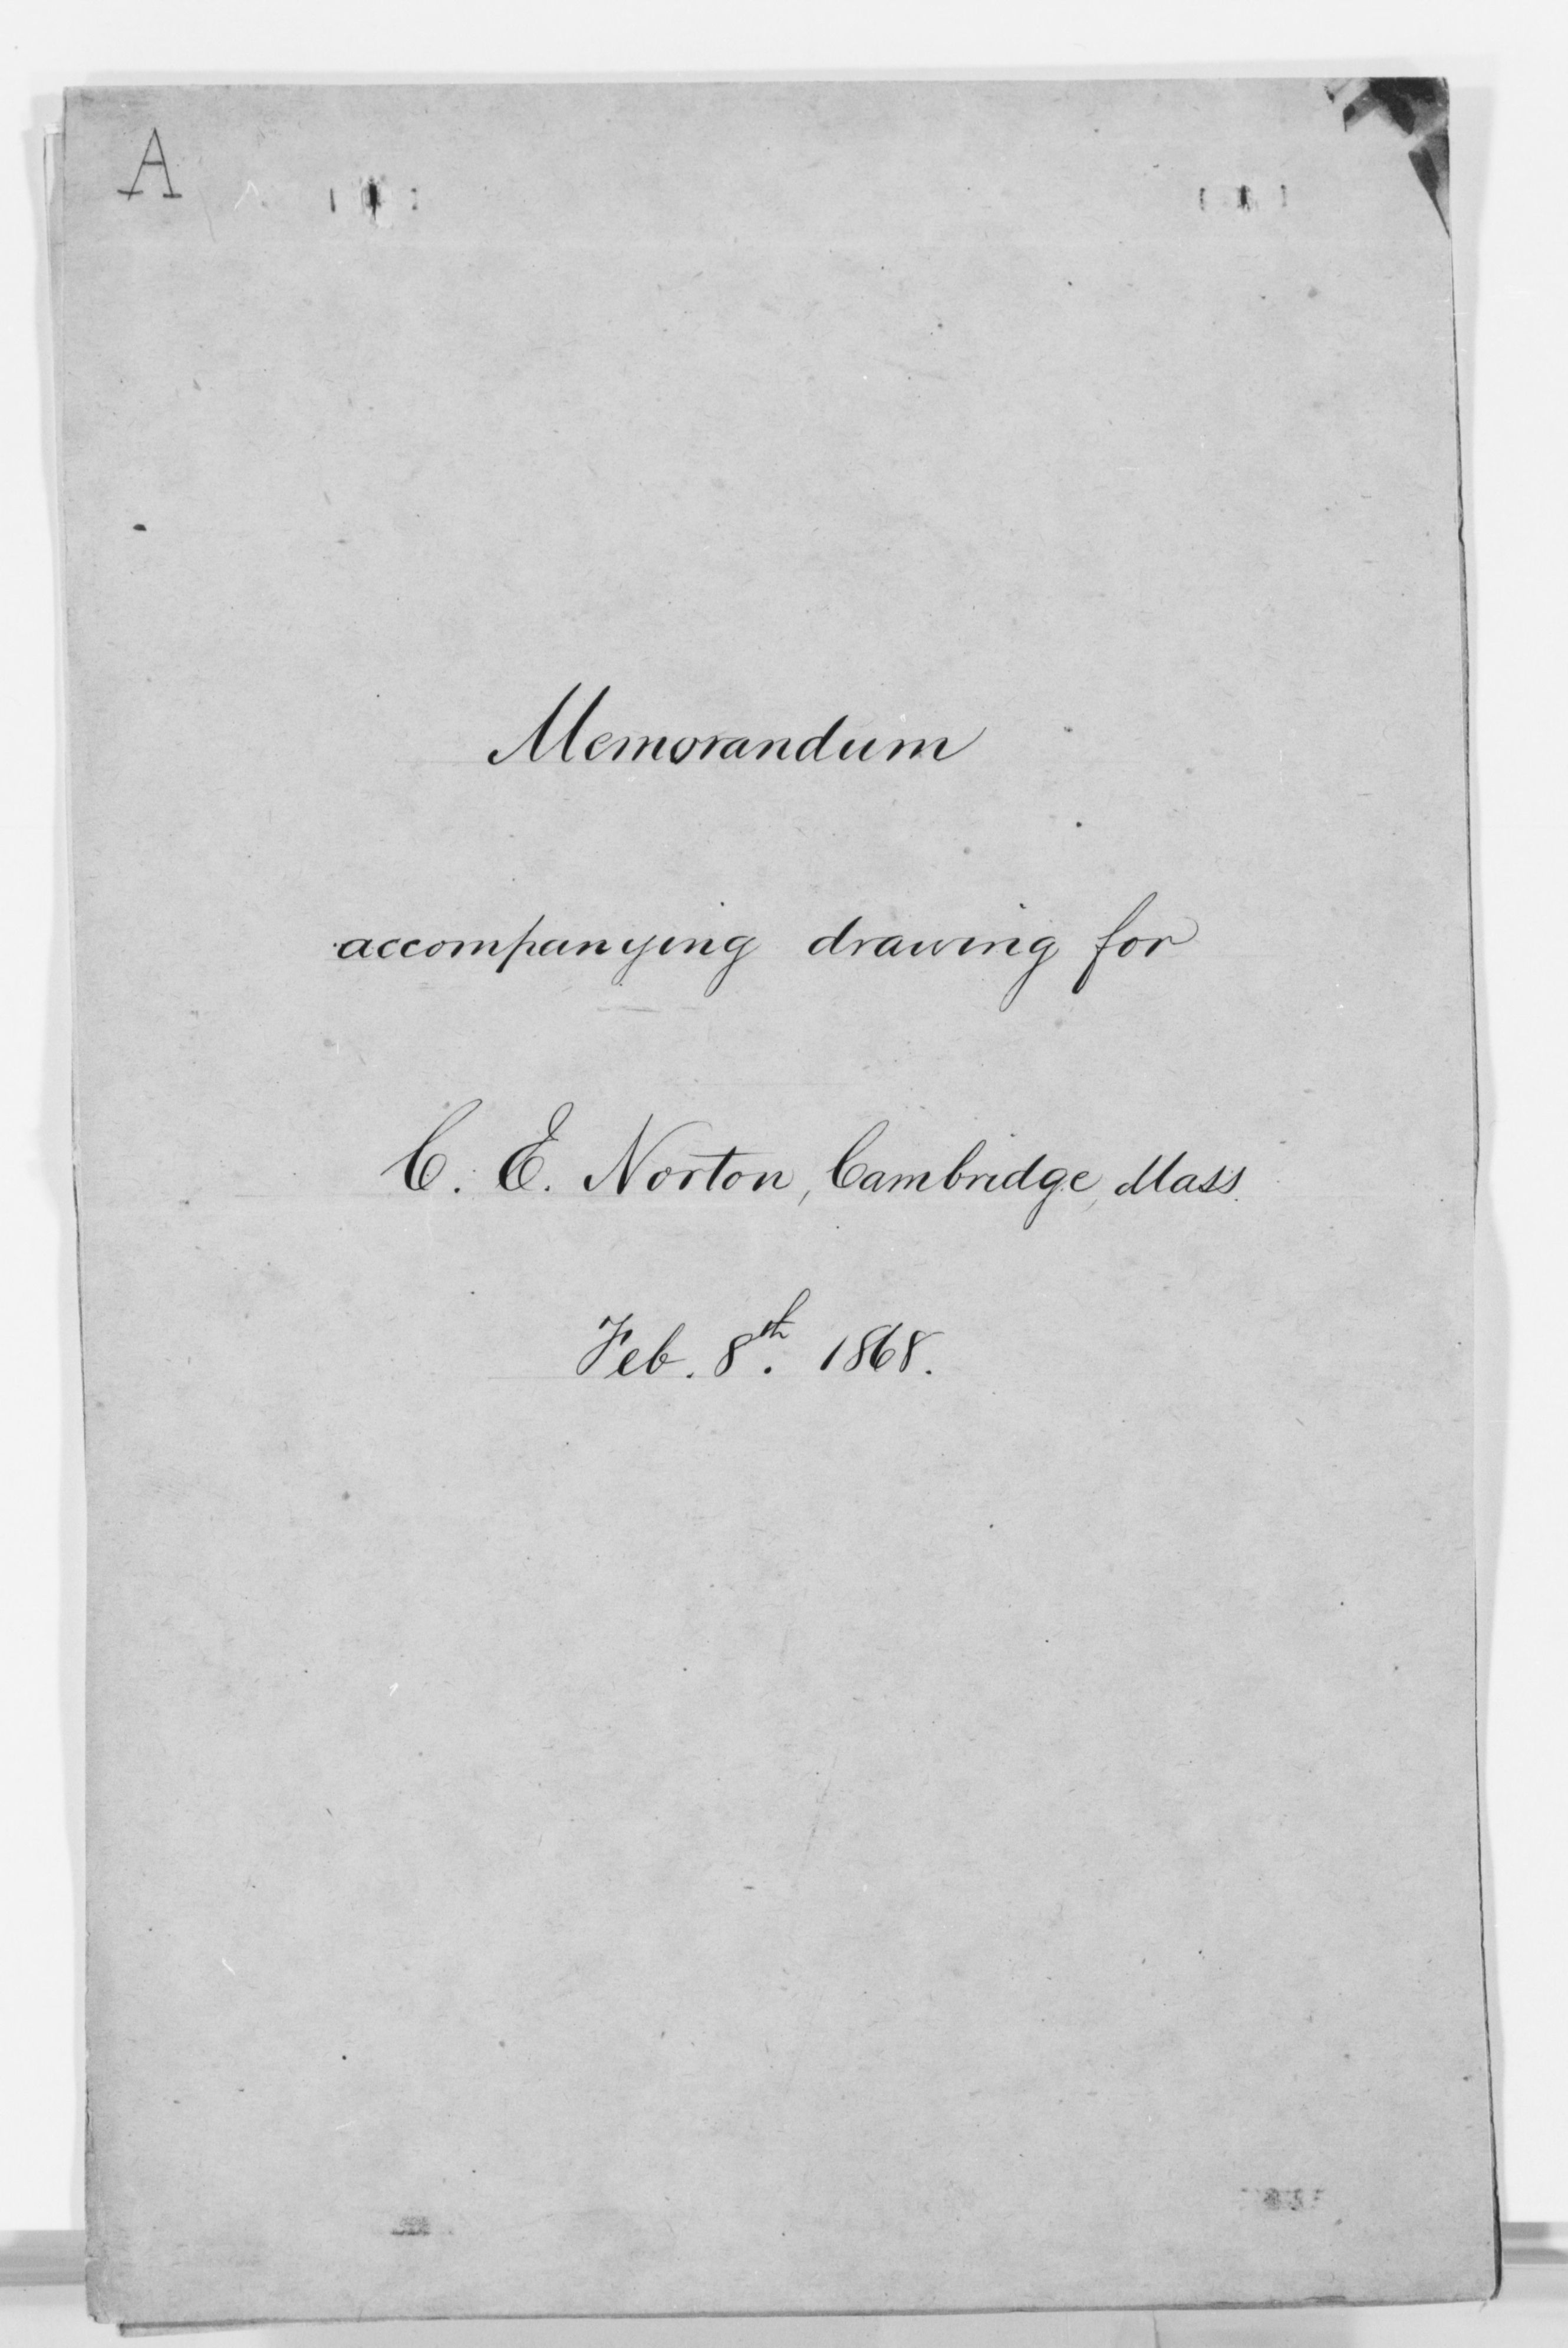 A
Memorandum
accompanying drawing for
C. E. Norton, Cambridge, Mass.
Feb. 8th. 1868.